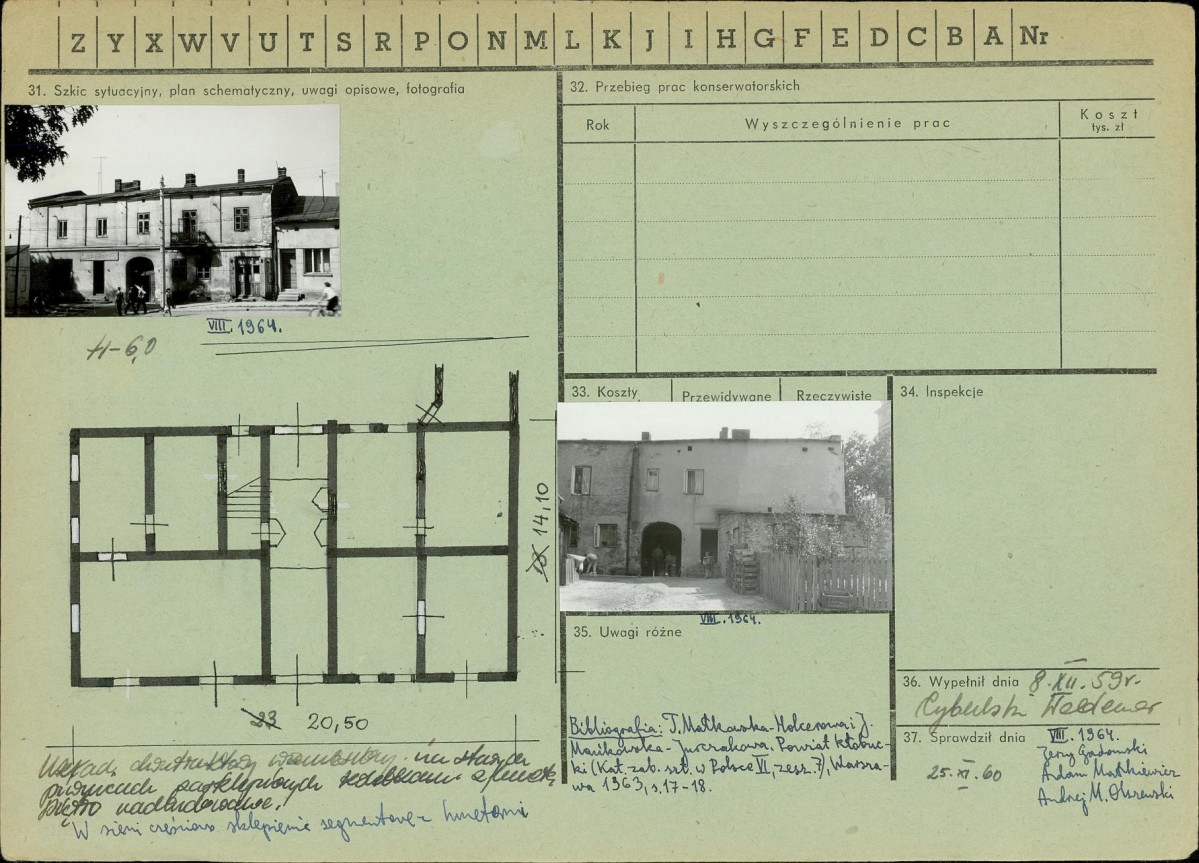 Z Y X W V U T S R P O N M L K J I H G F E D C B A Nr
31. Szkic sytuacyjny, plan schematyczny, uwagi opisowe, fotografia
VIII. 1964.
H-6,0
14,10
20,50
Układ dwutraktowy na starych
piwnicach
piętro nadbudowane.
W sieni częściowo sklepienie segmentowe z lunetami
32. Przebieg prac konserwatorskich
Rok
Wyszczególnienie prac
Koszt
tys. zł
33. Koszty
Przewidywane
Rzeczywiste
VIII. 1964.
34. Inspekcje
35. Uwagi różne
Bibliografia: T. Małkowska-Holcerowa i J.
Mańkowska-Jurczakowa, Powiat kłobuc-
ki (Kat. zab. szt. w Polsce VI, zesz. 7), Warsza-
wa 1963, s. 17-18.
36. Wypełnił dnia 8. XII. 59r.
Cybulski Waldemar
37. Sprawdził dnia VIII. 1964.
25. XI. 60
Jerzy Gadomski
Adam Małkiewicz
Andrzej M. Olszewski